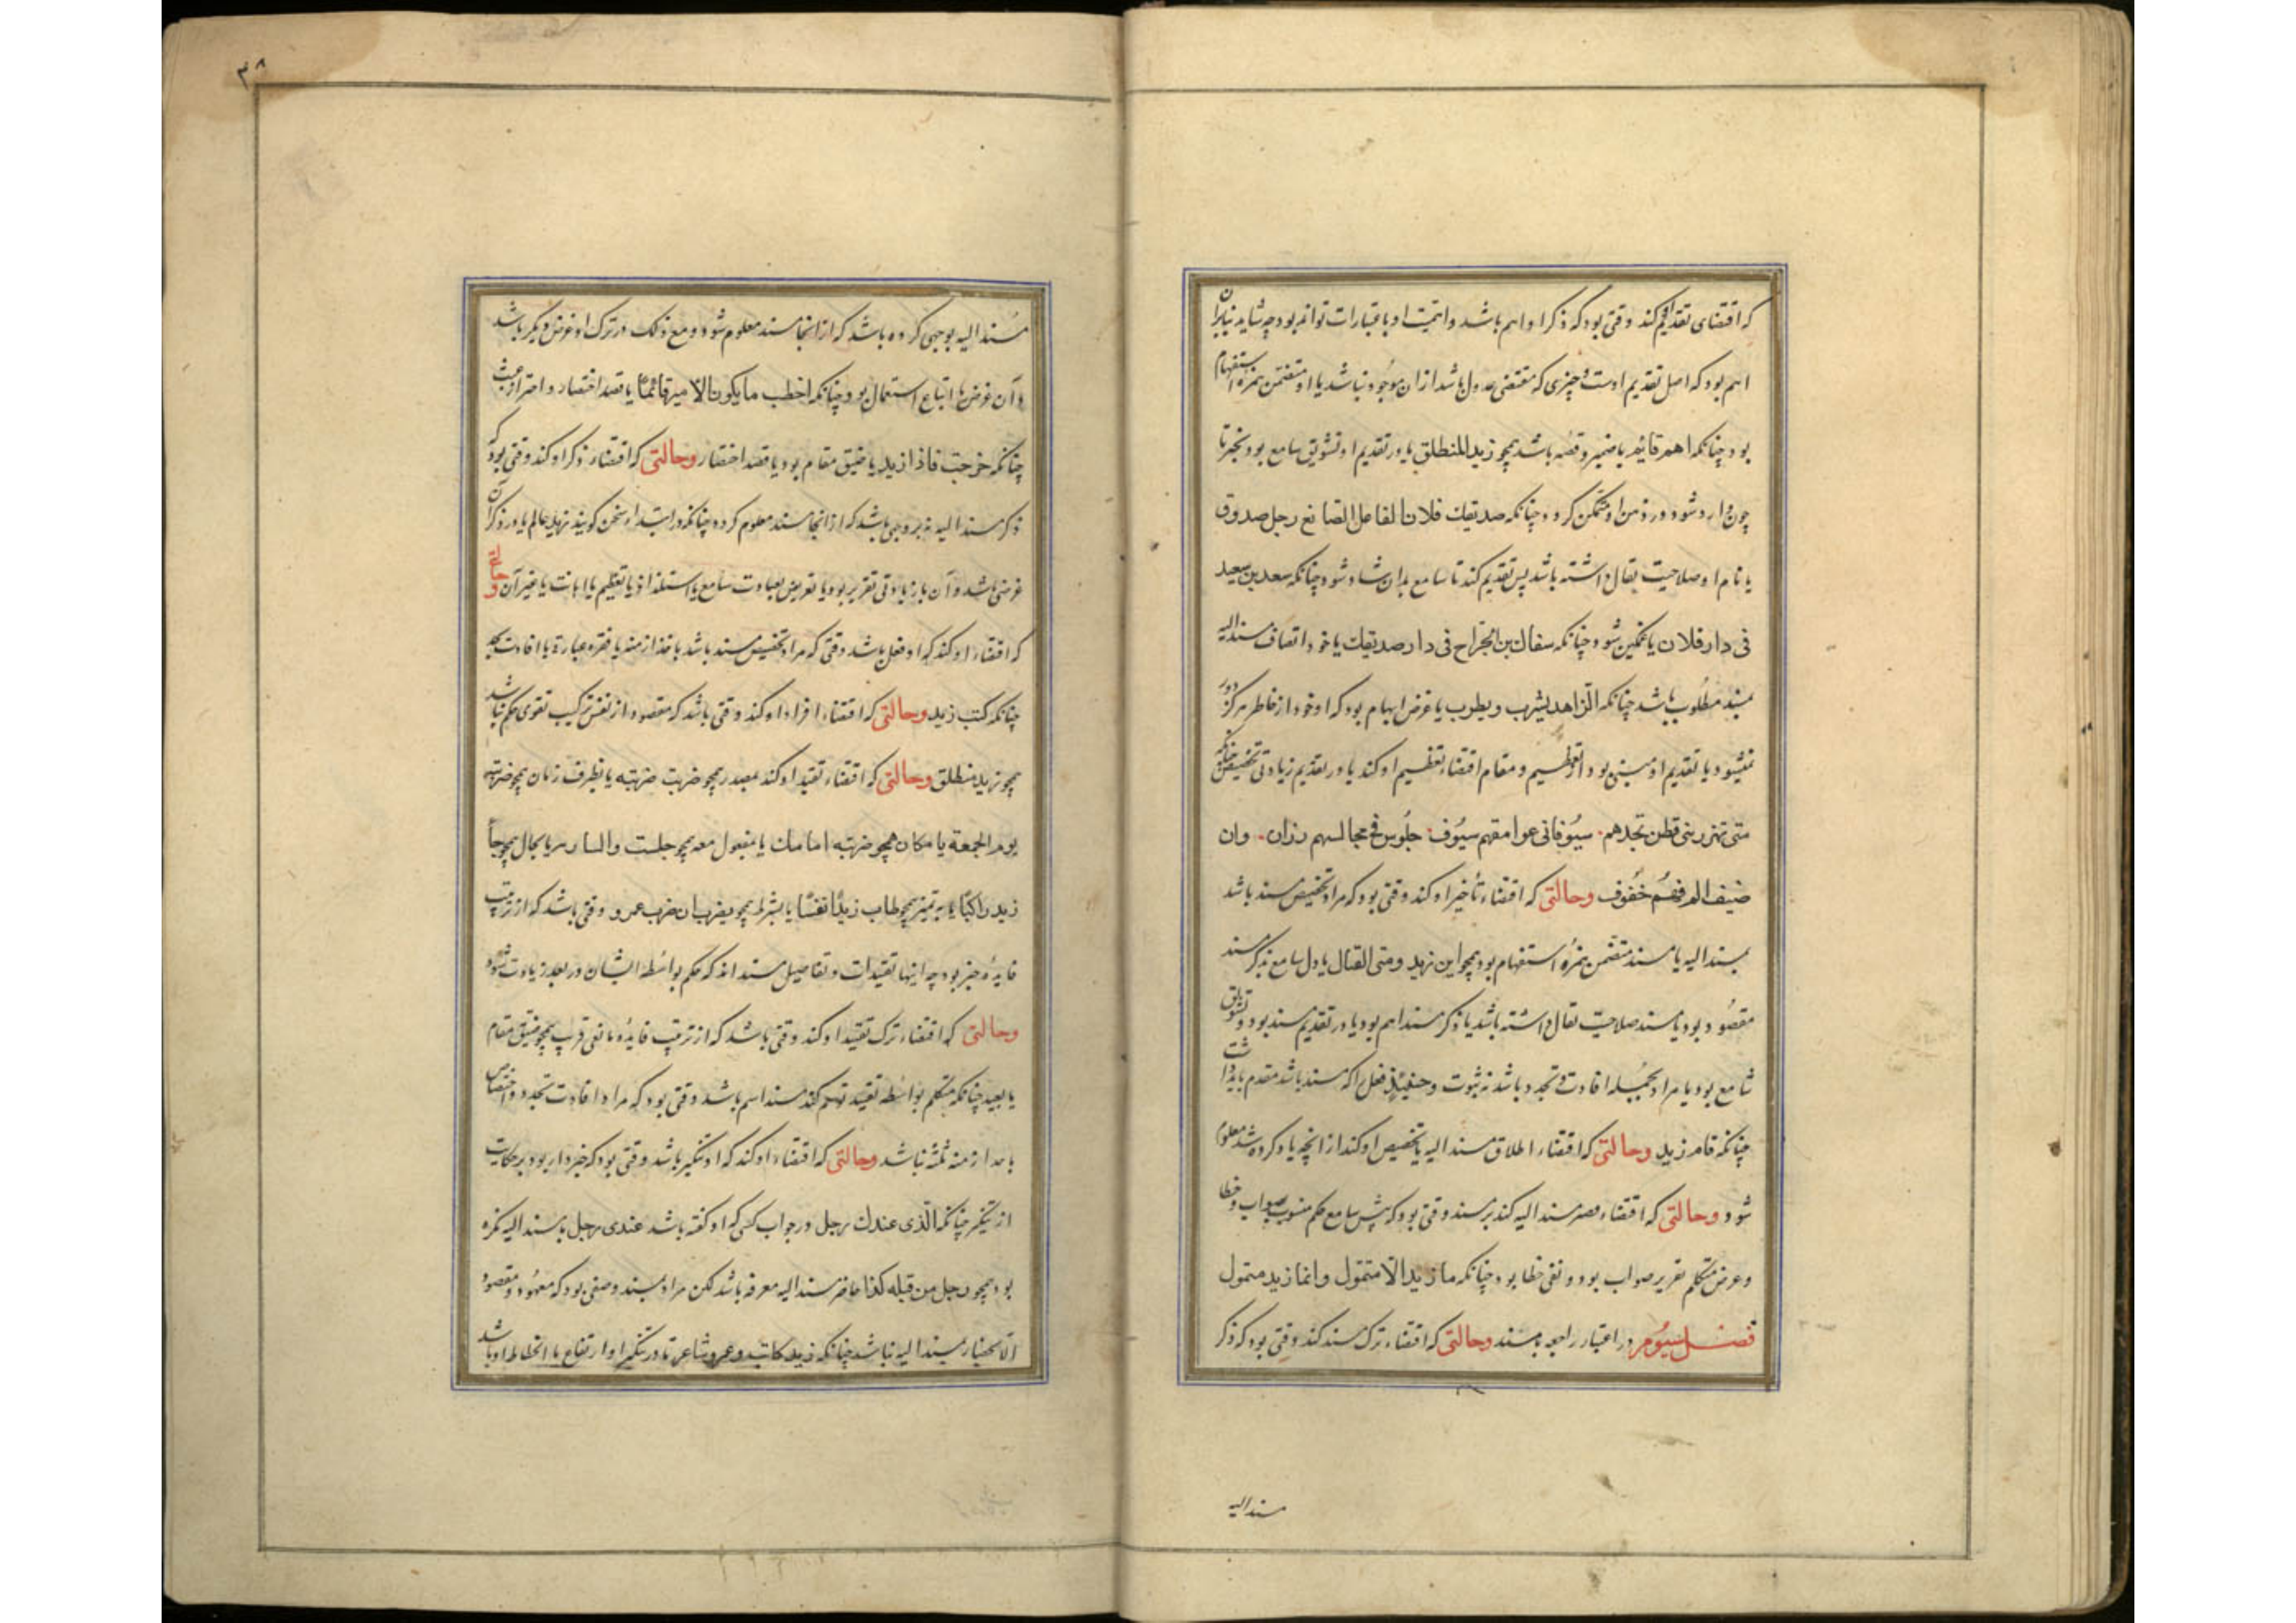 که اقتضای تقدیم او کند وقتی بود که ذکر او اهم باشد و اهمیت او باعتبارات تواند بود چه شاید بنابر آن
اهم بود که اصل تقدیم اوست و چیزی که مقتضی عدول باشد از ان موجود نباشد یا او متضمن همزه استفهام
بود چنانکه اهم قائم یا ضمیر و قصه باشد همچو زید المنطلق یا در تقدیم او تشویق سامع بود بخبر تا
چون وارد شود در ذهن او متمکن گردد چنانکه صدیقك فلان الفاعل الصانع رجل صدوق
یا نام او صلاحیت تفال داشته باشد پس تقدیم کند تا سامع بدان شاد شود چنانکه سعد بن سعید
فی دار فلان یا غمگین شود چنانکه سفاك بن الجراح فی دار صدیقك یا خود اتصاف مسند الیه
بمسند مطلوب باشد چنانکه الزاهد یشرب و یطرب یا غرض ایهام بود که او خود از خاطر هرگز دور
نمیشود یا تقدیم او منبی بود از تعظیم و مقام اقتضاء تعظیم او کند یا در تقدیم زیادتی تخصیص چنانکه
متی تهزز بنی قطن تجدهم سیوفا فی عواتقهم سیوف جلوس فی مجالسهم رزان وان
ضیف الم فهم خفوف وحالتی که اقتضاء تأخیر او کند وقتی بود که مراد تخصیص مسند باشد
بمسند الیه یا مسند متضمن همزه استفهام بود همچو این زید ومتی القتال یا دل سامع بذکر مسند
مقصود بود یا مسند صلاحیت تفال داشته باشد یا ذکر مسند اهم بود یا در تقدیم مسند بود و تشویق
سامع بود یا مراد بجمله افادت تجدد باشد نه ثبوت وحینئذ فعل را که مسند باشد مقدم باید داشت
چنانکه قام زید وحالتی که اقتضاء اطلاق مسند الیه یا تخصیص او کند از انچه یاد کرده شد معلوم
شود وحالتی که اقتضاء قصر مسند الیه کند بر مسند وقتی بود که پیش سامع حکم مشوب بصواب وخطا
وغرض متکلم تقریر صواب بود ونفی خطا بود چنانکه ما زید الا متمول وانما زید متمول
فصل سیوم در اعتبار راجعه بامسند وحالتی که اقتضاء ترك مسند کند وقتی بود که ذکر
مسند الیه
٣٨
مسند الیه بوجهی کرده باشد که از انجا مسند معلوم شود ومع ذلك در ترك او غرض دیگر باشد
و آن غرض یا اتباع استعمال بود چنانکه اخطب ما یکون الامیر قائما یا قصد اختصار و احتراز عبث
چنانکه خرجت فاذا زید یا ضیق مقام بود یا قصد اختصار وحالتی که اقتضاء ذکر او کند وقتی بود که
ذکر مسند الیه نه بر وجهی باشد که از انجا مسند معلوم گردد چنانکه در ابتداء سخن گویند زید عالم یا در ذکر آن
غرضی باشد و آن یا زیادتی تقریر بود یا تعریض بعبادت سامع یا استلذاذ یا تعظیم یا اهانت یا غیر آن وحالتی
که اقتضاء او کند که او فعل باشد وقتی که مراد تخصیص مسند باشد
چنانکه کتب زید وحالتی که اقتضاء افراد او کند وقتی باشد که مقصود از نفس ترکیب تقوی حکم نباشد
همچو زید منطلق وحالتی که اقتضاء تقیید او کند بمصدر همچو ضربت ضربته یا بظرف زمان همچو ضربته
یوم الجمعة یا مکان همچو ضربته امامك یا مفعول معه همچو جلست والساریه یا بحال همچو جاء
زید راکبا یا بتمیز همچو طاب زید نفسا یا بشرط همچو یضرب ان ضرب عمرو وقتی باشد که از ترتیب
فایده خبر بود چه اینها تقییدات و تفاصیل مسند اند که حکم بواسطه ایشان در بعد زیادت شود
وحالتی که اقتضاء ترك تقیید او کند وقتی باشد که از ترتیب فایده مانعی قریب همچو ضیق مقام
یا بعید چنانکه متکلم بواسطه تقیید توهم کند مسند اسم باشد وقتی بود که مراد افادت تجدد و اختصاص
باحد ازمنه ثلثه نباشد وحالتی که اقتضاء او کند که او تنکیر باشد وقتی بود که خبر دار بود بر حکایت
از تنکیر چنانکه الذی عندك رجل در جواب کسی که او گفته باشد عندی رجل یا مسند الیه نکره
بود همچو رجل من قبیله کذا حاضر مسند الیه معرفه باشد لکن مراد بمسند وصفی بود که معهود و مقصود
الانحصار بمسند الیه نباشد چنانکه زید کاتب وعمرو شاعر تا در تنکیر او ارتفاع یا انحطاط او باشد